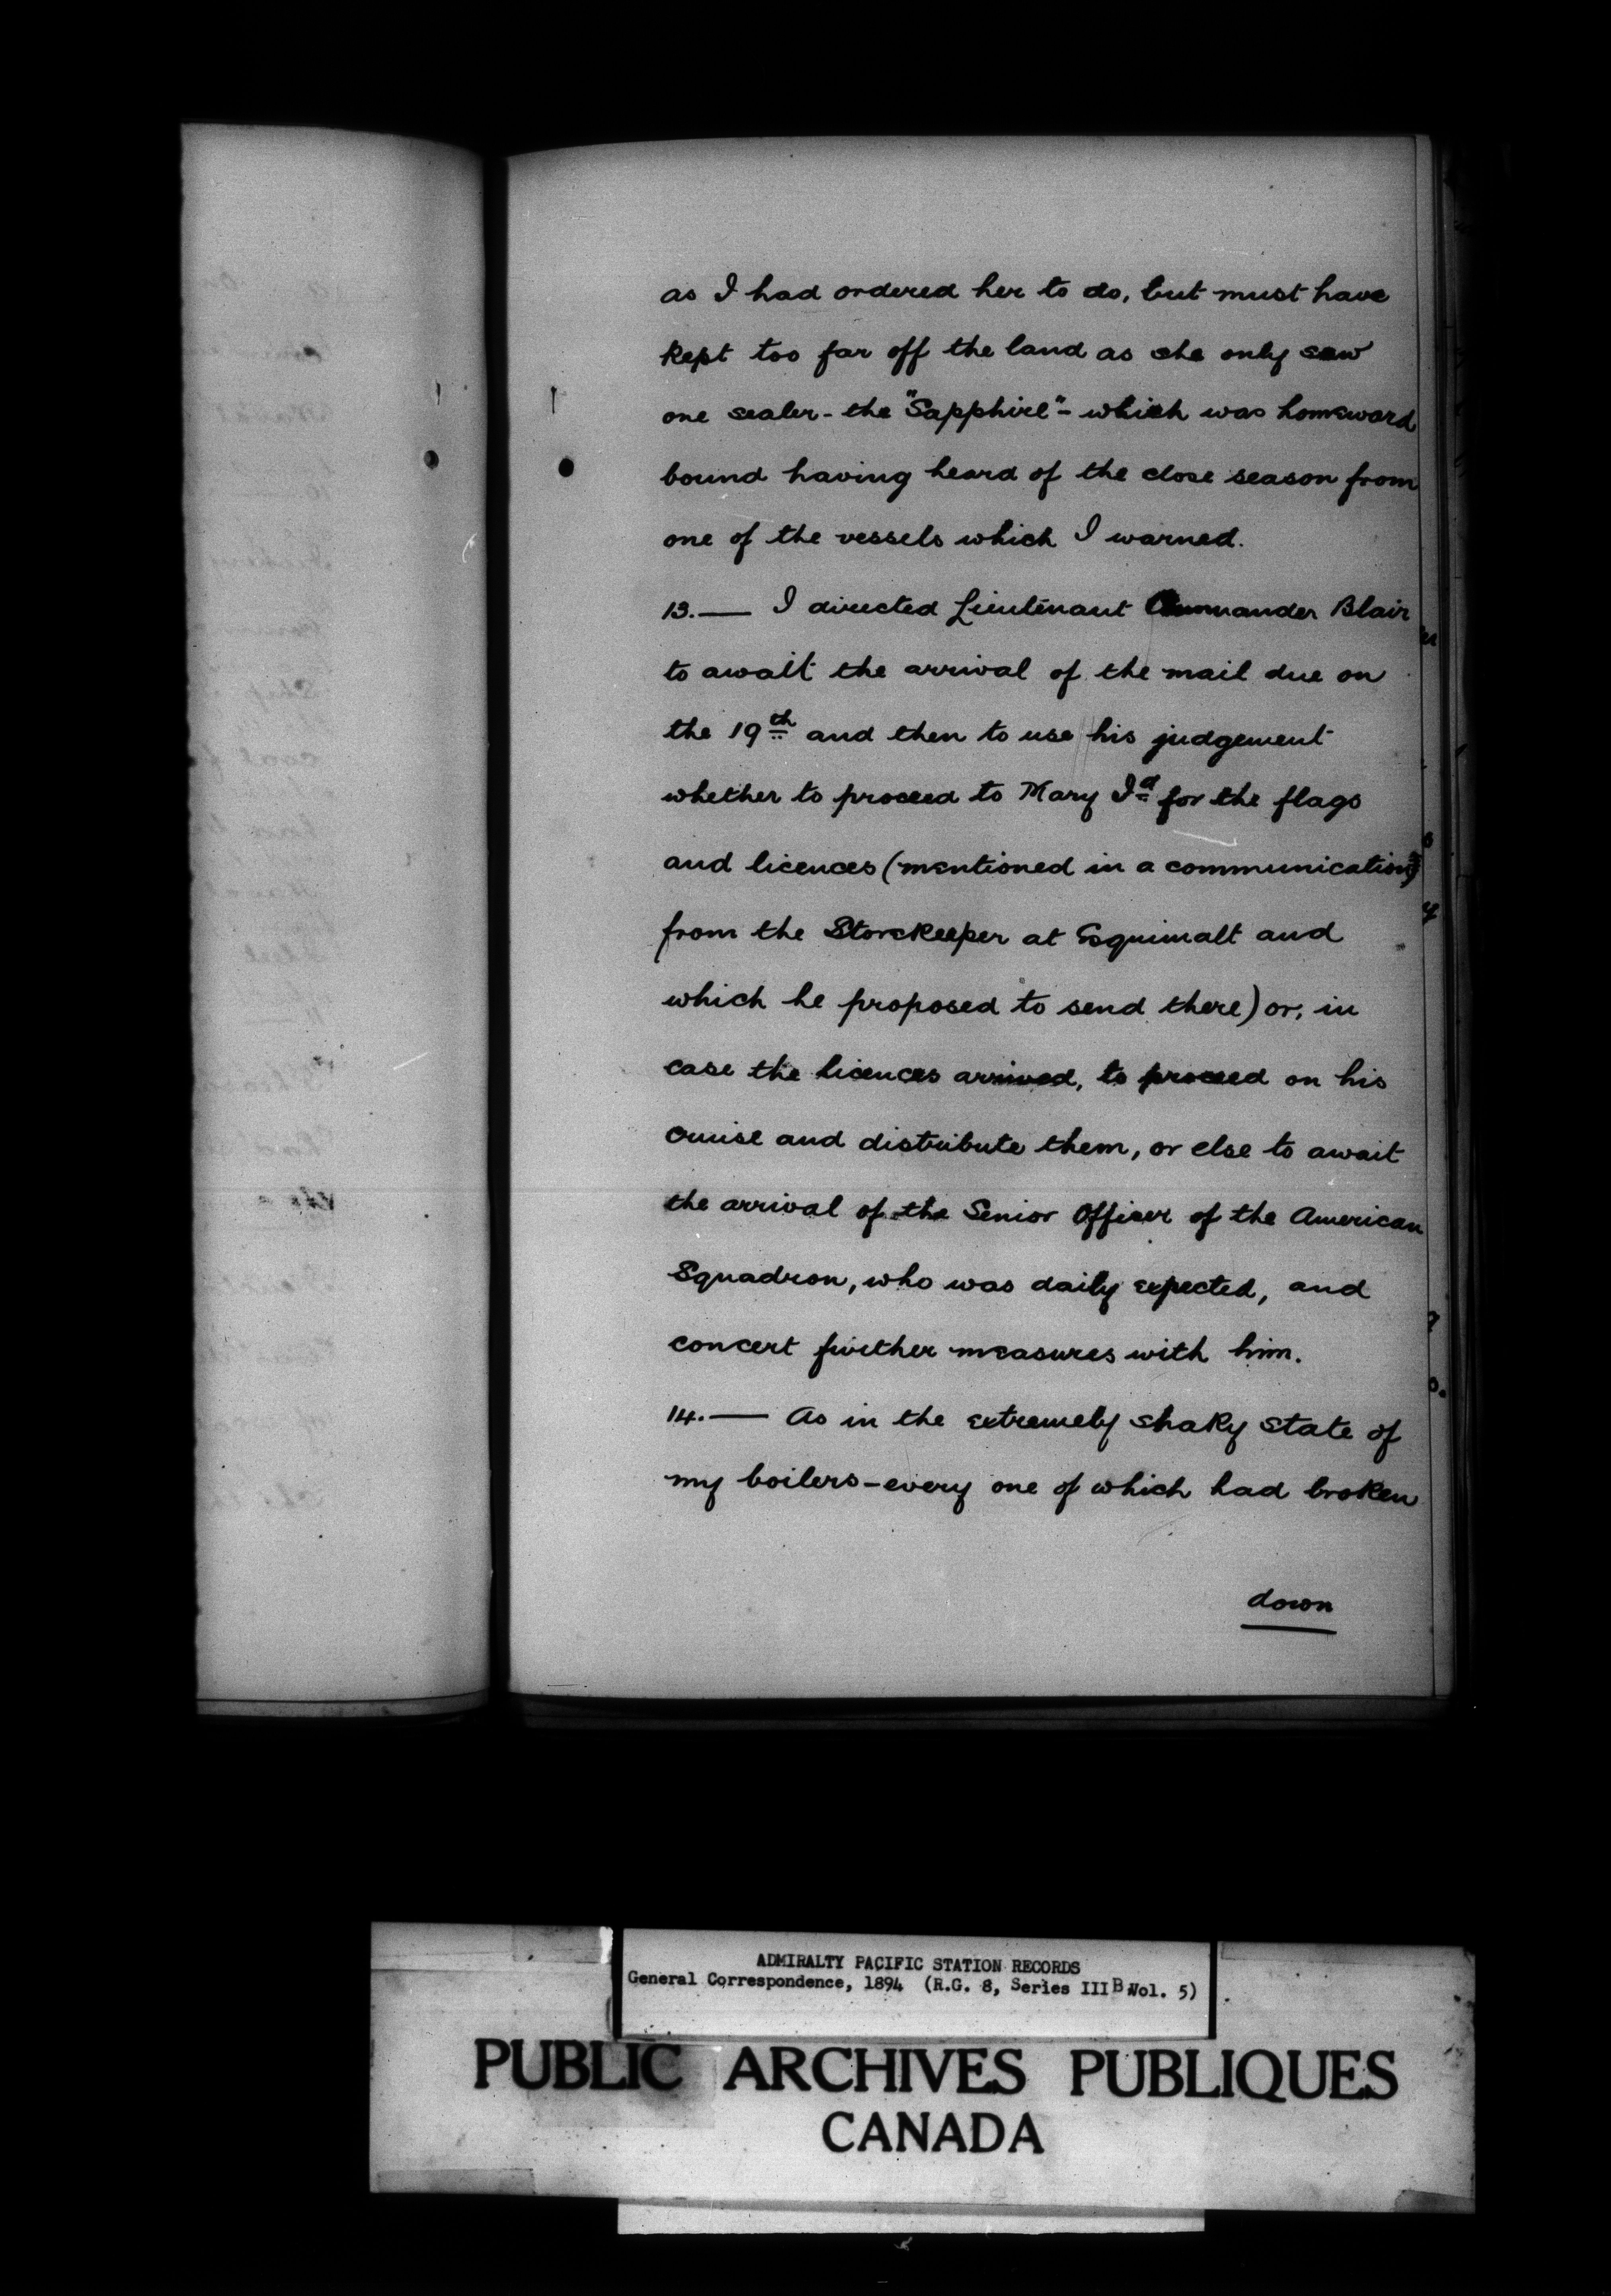 as I had ordered her to do, but must have
kept too far off the land as she only saw
one sealer - the "Sapphire" - which was homeward
bound having heard of the close season from
one of the vessels which I warned.
13.— I directed Lieutenant Commander Blair
to await the arrival of the mail due on
the 19th and then to use his judgement
whether to proceed to Mary Id for the flags
and licences (mentioned in a communication
from the Storekeeper at Esquimalt and
which he proposed to send there) or, in
case the licences arrived, to proceed on his
cruise and distribute them, or else to await
the arrival of the Senior Officer of the American
Squadron, who was daily expected, and
concert further measures with him.
14.— As in the extremely shaky state of
my boilers - every one of which had broken
down
ADMIRALTY PACIFIC STATION RECORDS
General Correspondence, 1894 (R.G. 8, Series III B Vol. 5)
PUBLIC ARCHIVES PUBLIQUES
CANADA